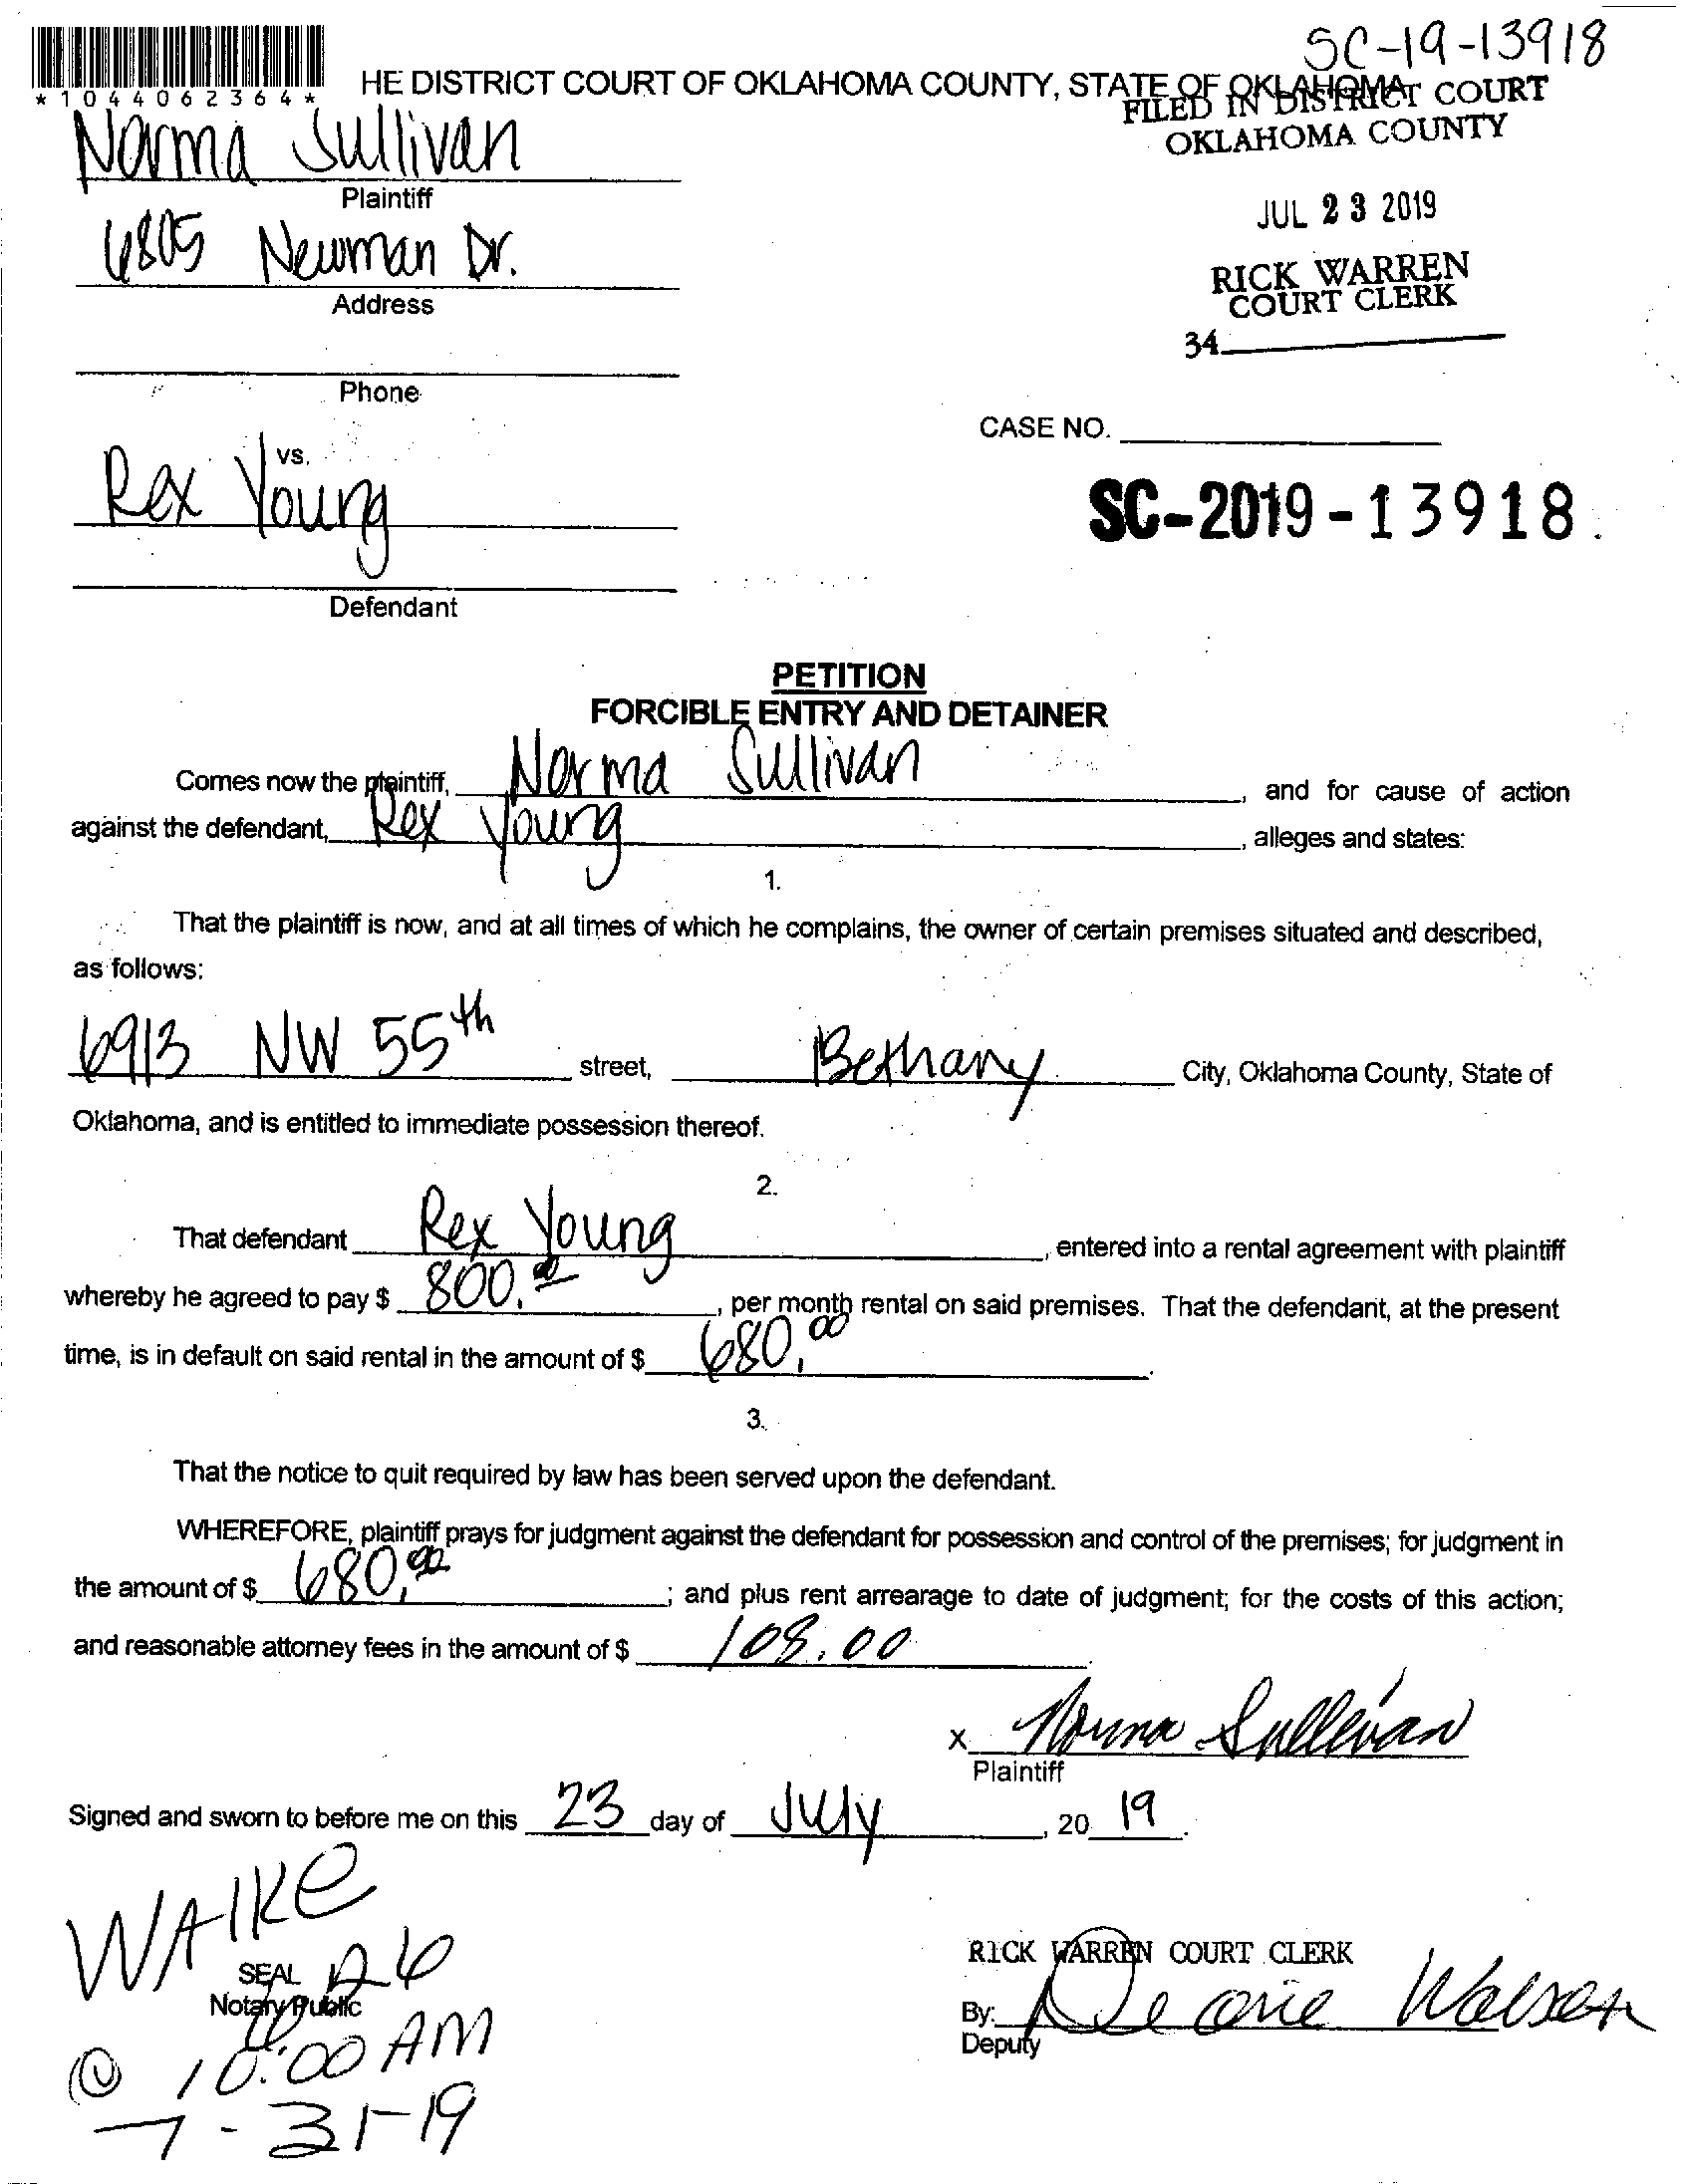 SC-19-13918
*1044062364*
HE DISTRICT COURT OF OKLAHOMA COUNTY, STATE OF OKLAHOMA
FILED IN DISTRICT COURT
OKLAHOMA COUNTY
Norma Sullivan
Plaintiff
JUL 23 2019
6805 Newman Dr.
Address
RICK WARREN
COURT CLERK
34
Phone
CASE NO.
vs.
Rex Young
SC-2019-13918
Defendant
PETITION
FORCIBLE ENTRY AND DETAINER
Comes now the plaintiff, Norma Sullivan, and for cause of action
against the defendant, Rex Young, alleges and states:
1.
That the plaintiff is now, and at all times of which he complains, the owner of certain premises situated and described,
as follows:
6913 NW 55th street, Bethany City, Oklahoma County, State of
Oklahoma, and is entitled to immediate possession thereof.
2.
That defendant Rex Young, entered into a rental agreement with plaintiff
whereby he agreed to pay $ 800.00, per month rental on said premises. That the defendant, at the present
time, is in default on said rental in the amount of $ 680.00.
3.
That the notice to quit required by law has been served upon the defendant.
WHEREFORE, plaintiff prays for judgment against the defendant for possession and control of the premises; for judgment in
the amount of $ 680.00; and plus rent arrearage to date of judgment; for the costs of this action;
and reasonable attorney fees in the amount of $ 108.00.
x Norma Sullivan
Plaintiff
Signed and sworn to before me on this 23 day of July, 2019.
WAIKE
SEAL
Notary Public
RICK WARREN COURT CLERK
By:
Deputy
@ 10:00 AM
7-31-19